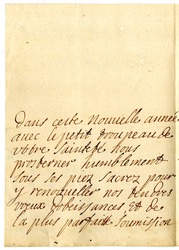 Dans cette nouvelle année
avec le petit troupeau de
votre Sainteté nous
prosterner humblement
sous ses piez sacrez pour
y renouveller nos
vœux obeissances et de
la plus parfaite soumission